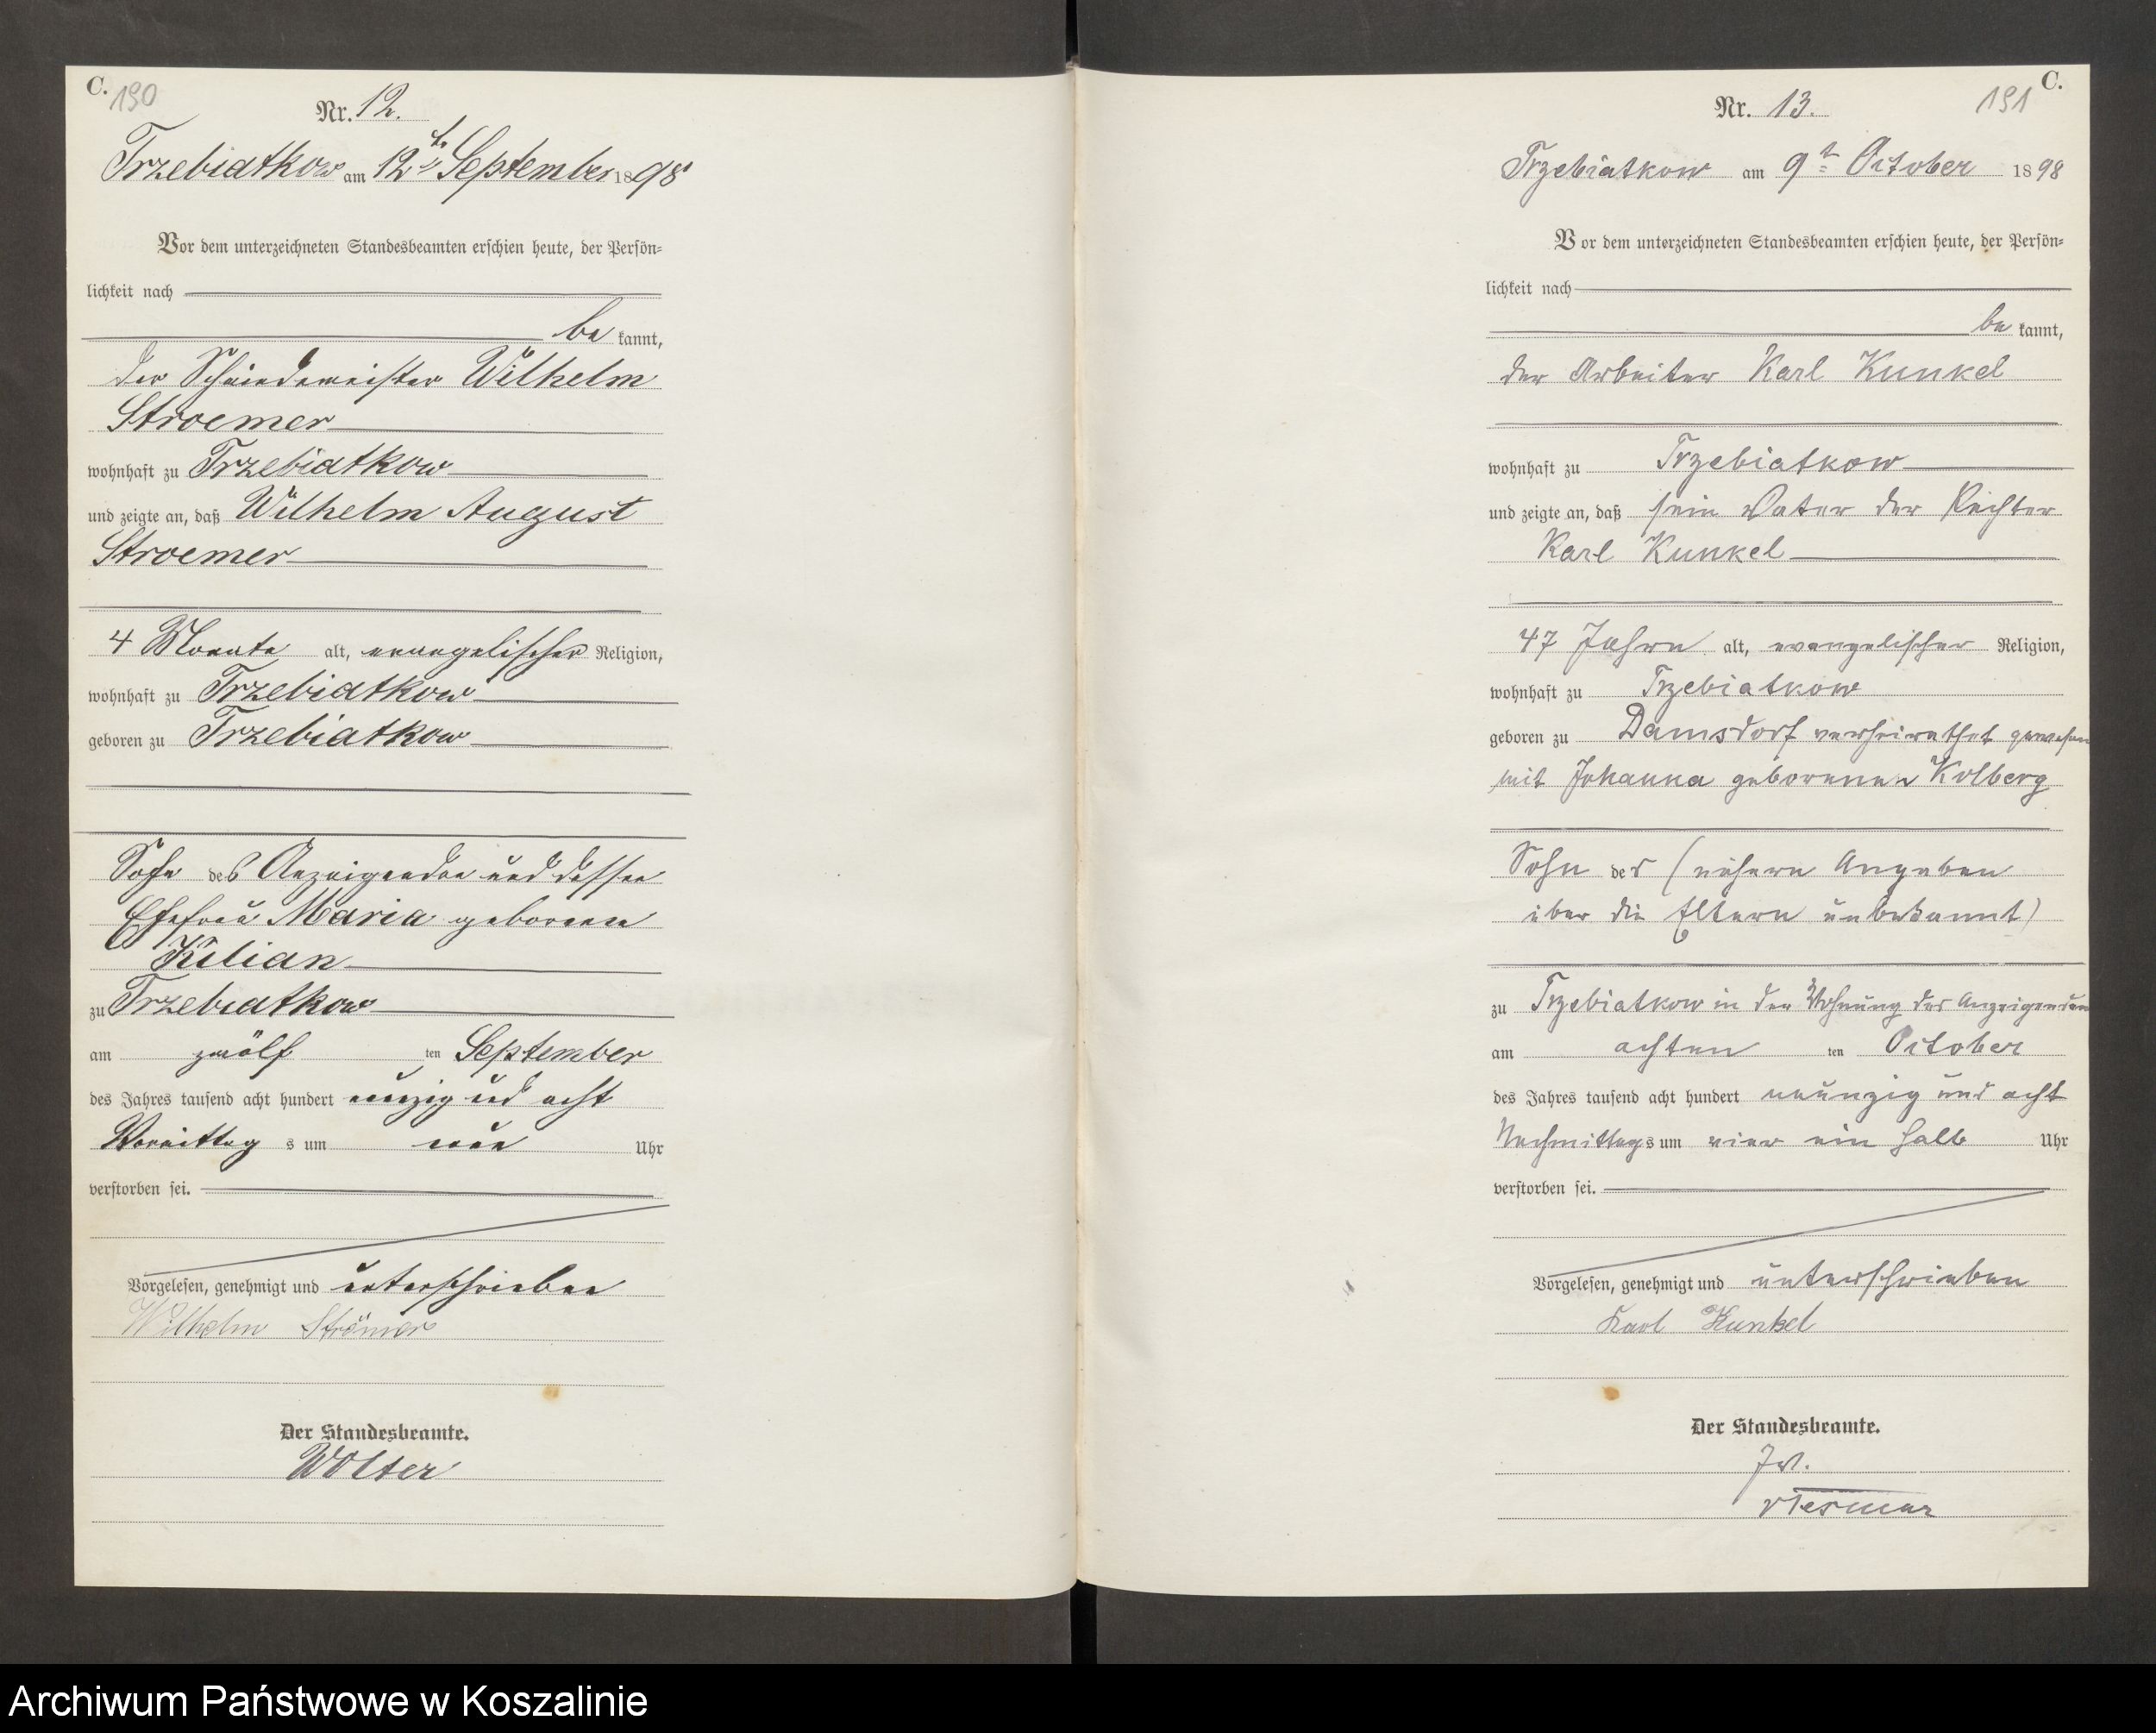 C. 190
Nr. 12.
Trzebiatkow am 12ten September 1898
Vor dem unterzeichneten Standesbeamten erschien heute, der Persön-
lichkeit nach
be kannt,
der Schmiedemeister Wilhelm
Stroemer
wohnhaft zu Trzebiatkow
und zeigte an, daß Wilhelm August
Stroemer
4 Monate alt, evangelischer Religion,
wohnhaft zu Trzebiatkow
geboren zu Trzebiatkow
Sohn des Anzeigenden und dessen
Ehefrau Maria geborene
Kilian
zu Trzebiatkow
am zwölf ten September
des Jahres tausend acht hundert neunzig und acht
Vormittag s um neun Uhr
verstorben sei.
Vorgelesen, genehmigt und unterschrieben
Wilhelm Strömer
Der Standesbeamte.
Wolter
191 C.
Nr. 13.
Trzebiatkow am 9t October 1898
Vor dem unterzeichneten Standesbeamten erschien heute, der Persön-
lichkeit nach
be kannt,
der Arbeiter Karl Kunkel
wohnhaft zu Trzebiatkow
und zeigte an, daß sein Vater der Pächter
Karl Kunkel
47 Jahre alt, evangelischer Religion,
wohnhaft zu Trzebiatkow
geboren zu Damsdorf verheirathet gewesen
mit Johanna geborenen Kolberg
Sohn der (nähere Angaben
über die Eltern unbekannt)
zu Trzebiatkow in der Wohnung des Anzeigenden
am achten ten October
des Jahres tausend acht hundert neunzig und acht
Nachmittags um vier ein halb Uhr
verstorben sei.
Vorgelesen, genehmigt und unterschrieben
Karl Kunkel
Der Standesbeamte.
Archiwum Państwowe w Koszalinie